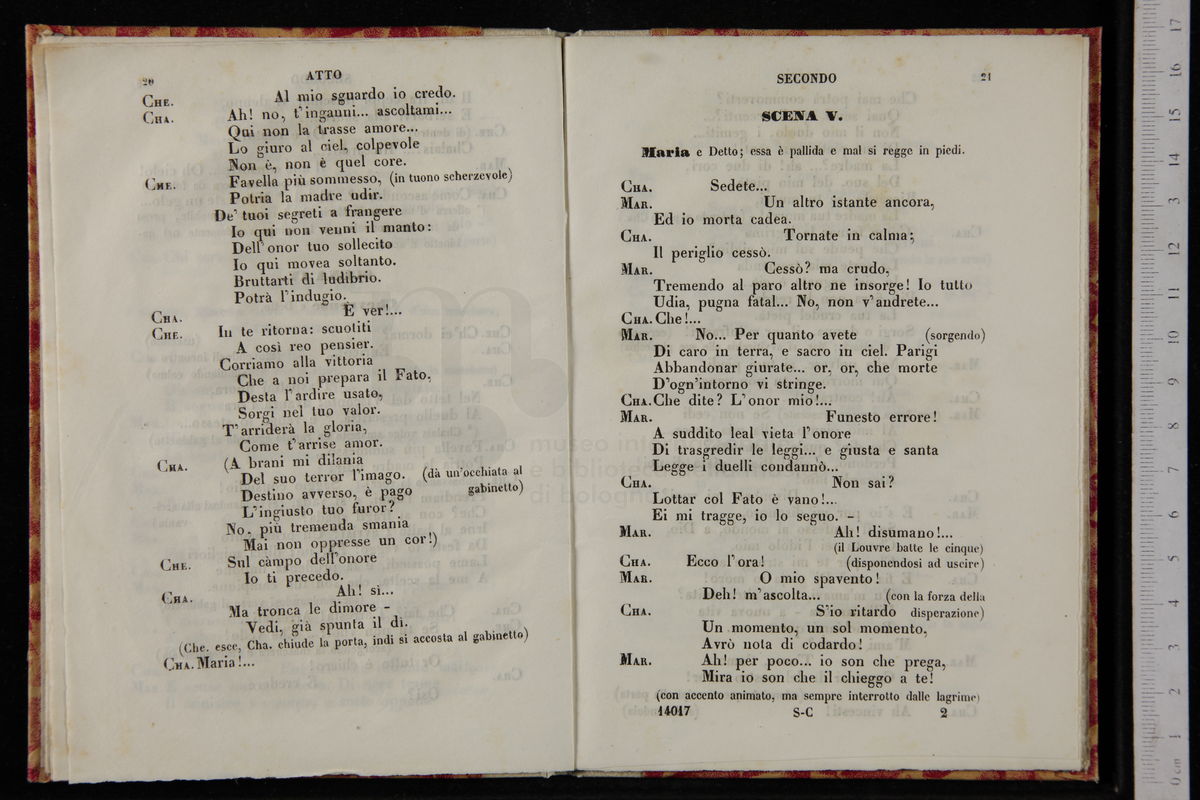 20
ATTO
CHE. Al mio sguardo io credo.
CHA. Ah! no, t'inganni... ascoltami...
Qui non la trasse amore...
Lo giuro al ciel, colpevole
Non è, non è quel core.
CHE. Favella più sommesso, (in tuono scherzevole)
Potria la madre udir.
De' tuoi segreti a frangere
Io qui non venni il manto:
Dell'onor tuo sollecito
Io qui movea soltanto.
Bruttarti di ludibrio.
Potrà l'indugio.
CHA. È ver!...
CHE. In te ritorna: scuotiti
A così reo pensier.
Corriamo alla vittoria
Che a noi prepara il Fato,
Desta l'ardire usato,
Sorgi nel tuo valor.
T'arriderà la gloria,
Come t'arrise amor.
CHA. (A brani mi dilania
Del suo terror l'imago. (dà un'occhiata al
Destino avverso, è pago gabinetto)
L'ingiusto tuo furor?
No, più tremenda smania
Mai non oppresse un cor!)
CHE. Sul campo dell'onore
Io ti precedo.
CHA. Ah! sì...
Ma tronca le dimore -
Vedi, già spunta il dì.
(Che. esce, Cha. chiude la porta, indi si accosta al gabinetto)
CHA. Maria!...
SECONDO
21
SCENA V.
Maria e Detto; essa è pallida e mal si regge in piedi.
CHA. Sedete...
MAR. Un altro istante ancora,
Ed io morta cadea.
CHA. Tornate in calma;
Il periglio cessò.
MAR. Cessò? ma crudo,
Tremendo al paro altro ne insorge! Io tutto
Udia, pugna fatal... No, non v'andrete...
CHA. Che!...
MAR. No... Per quanto avete (sorgendo)
Di caro in terra, e sacro in ciel. Parigi
Abbandonar giurate... or, or, che morte
D'ogn'intorno vi stringe.
CHA. Che dite? L'onor mio!...
MAR. Funesto errore!
A suddito leal vieta l'onore
Di trasgredir le leggi... e giusta e santa
Legge i duelli condannò...
CHA. Non sai?
Lottar col Fato è vano!...
Ei mi tragge, io lo seguo. -
MAR. Ah! disumano!...
(il Louvre batte le cinque)
CHA. Ecco l'ora! (disponendosi ad uscire)
MAR. O mio spavento!
Deh! m'ascolta... (con la forza della
CHA. S'io ritardo disperazione)
Un momento, un sol momento,
Avrò nota di codardo!
MAR. Ah! per poco... io son che prega,
Mira io son che il chieggo a te!
(con accento animato, ma sempre interrotto dalle lagrime)
14017 S-C 2